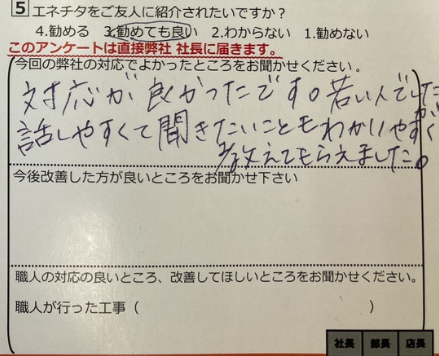 5 エネチタをご友人に紹介されたいですか？
4.勧める 3.勧めても良い 2.わからない 1.勧めない
このアンケートは直接弊社 社長に届きます。
今回の弊社の対応でよかったところをお聞かせください。
対応が良かったです。若い人でしたが
話しやすくて聞きたいこともわかりやすく
教えてもらえました。
今後改善した方が良いところをお聞かせ下さい
職人の対応の良いところ、改善してほしいところをお聞かせください。
職人が行った工事（ ）
社長 部長 店長